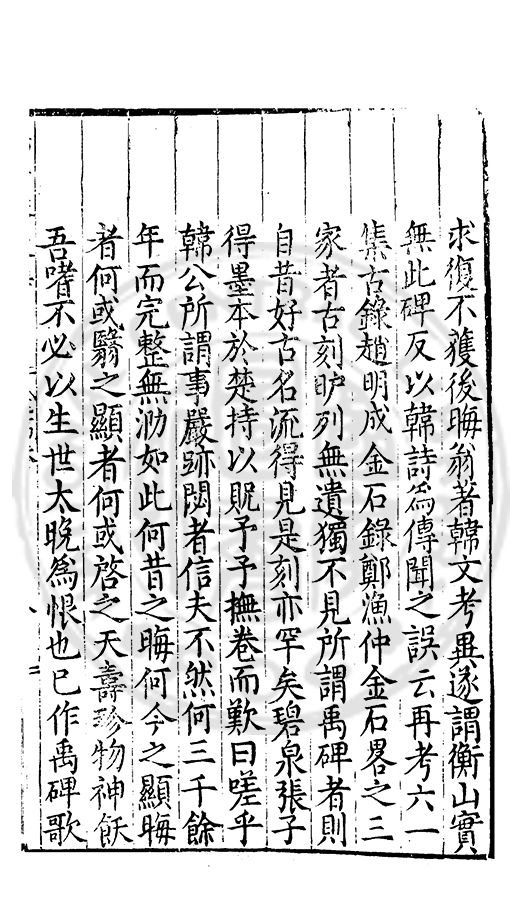 求復不獲後晦翁著韓文考異遂謂衡山實
無此碑反以韓詩為傳聞之誤云再考六一
集古錄趙明成金石錄鄭漁仲金石畧之三
家者古刻昈列無遺獨不見所謂禹碑者則
自昔好古名流得見是刻亦罕矣碧泉張子
得墨本於楚持以貺予予撫卷而歎曰嗟乎
韓公所謂事嚴跡閟者信夫不然何三千餘
年而完整無泐如此何昔之晦何今之顯晦
者何或翳之顯者何或啓之天壽珍物神飫
吾嗜不必以生世太晚為恨也已作禹碑歌